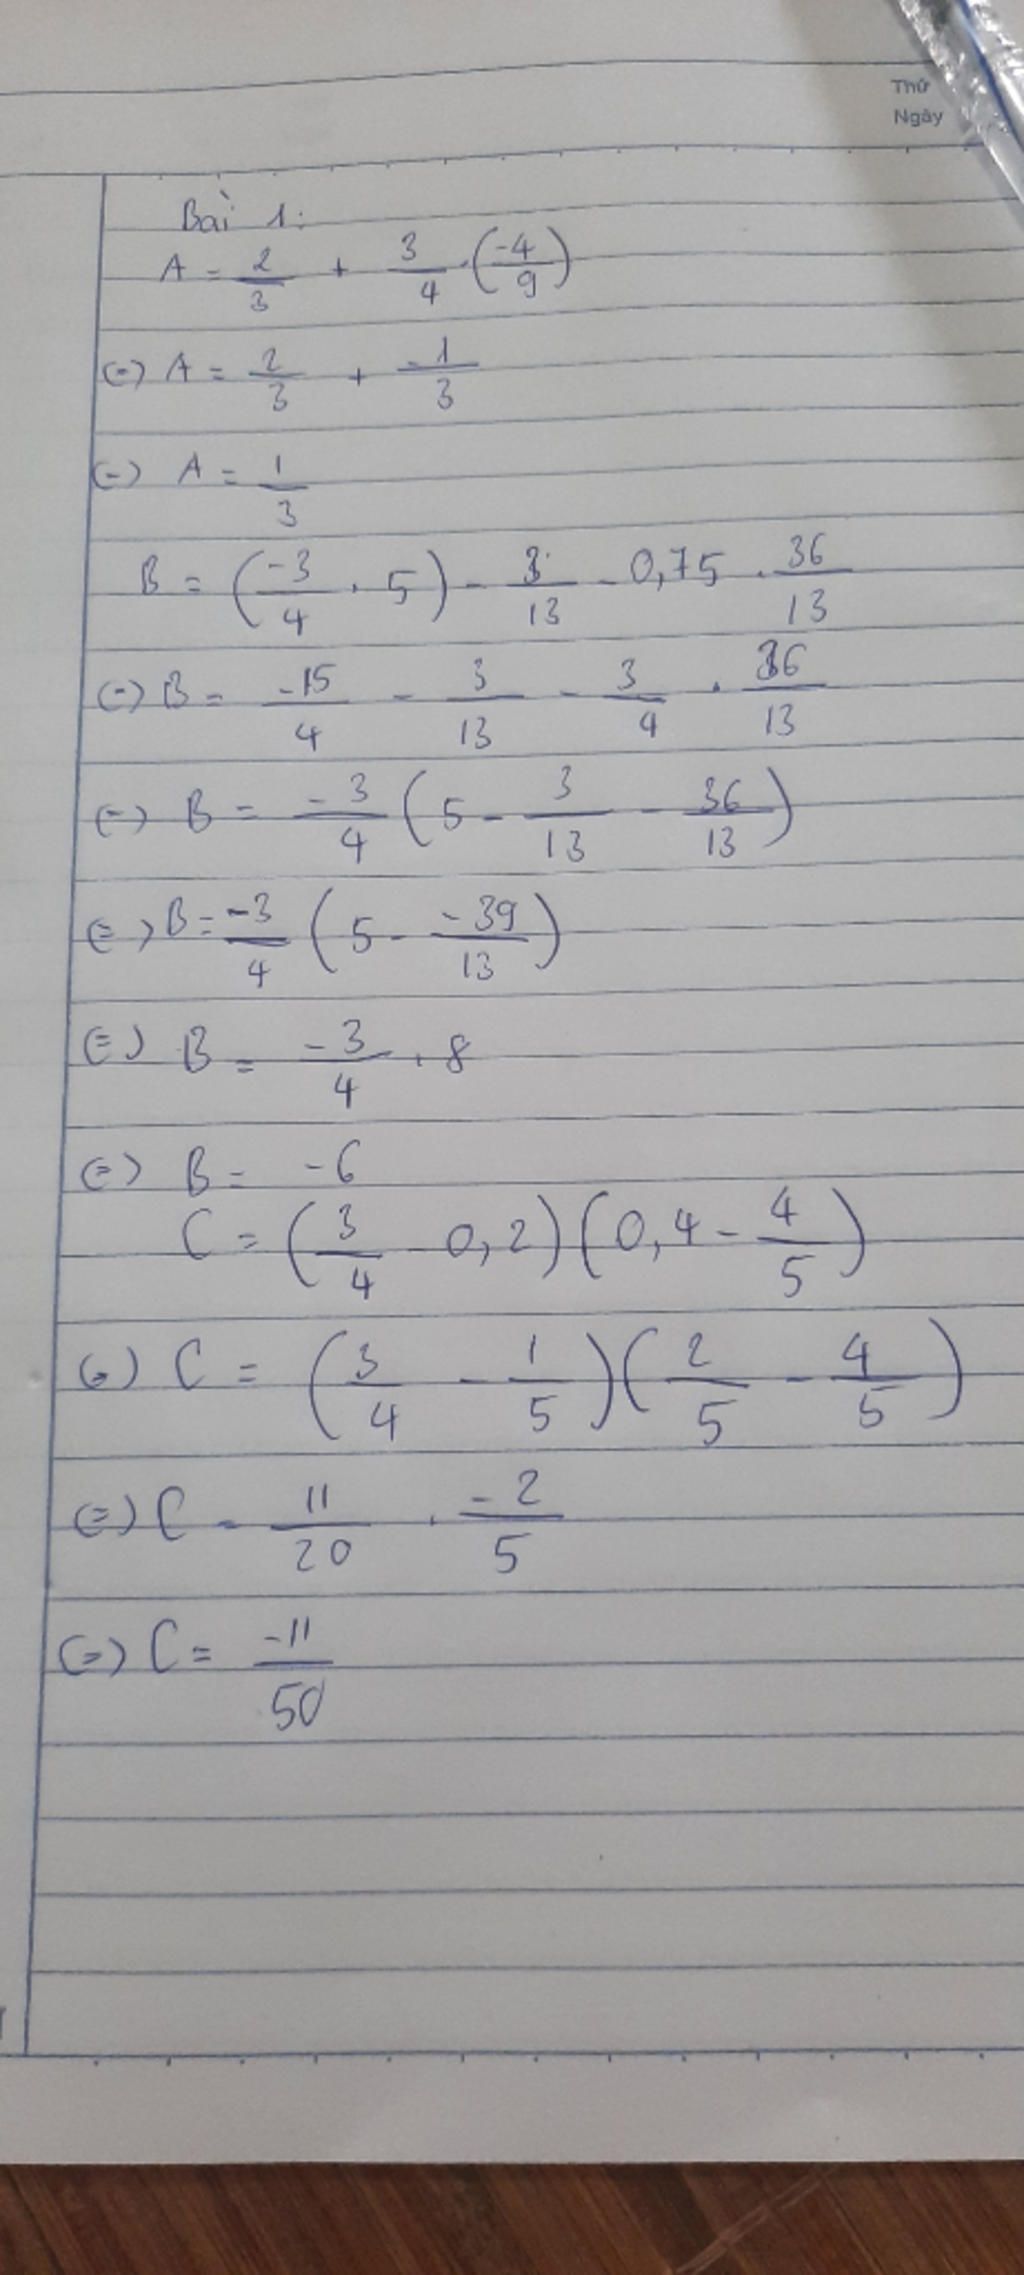 Thứ
Ngày
Bài 1:
A = 2/3 + 3/4 . (-4/9)
(=) A = 2/3 + -1/3
(=) A = 1/3
B = (-3/4 . 5) - 3/13 - 0,75 . 36/13
(=) B = -15/4 - 3/13 - 3/4 . 36/13
(=) B = -3/4 (5 - 3/13 - 36/13)
(=) B = -3/4 (5 - -39/13)
(=) B = -3/4 . 8
(=) B = -6
C = (3/4 - 0,2)(0,4 - 4/5)
(=) C = (3/4 - 1/5)(2/5 - 4/5)
(=) C = 11/20 . -2/5
(=) C = -11/50